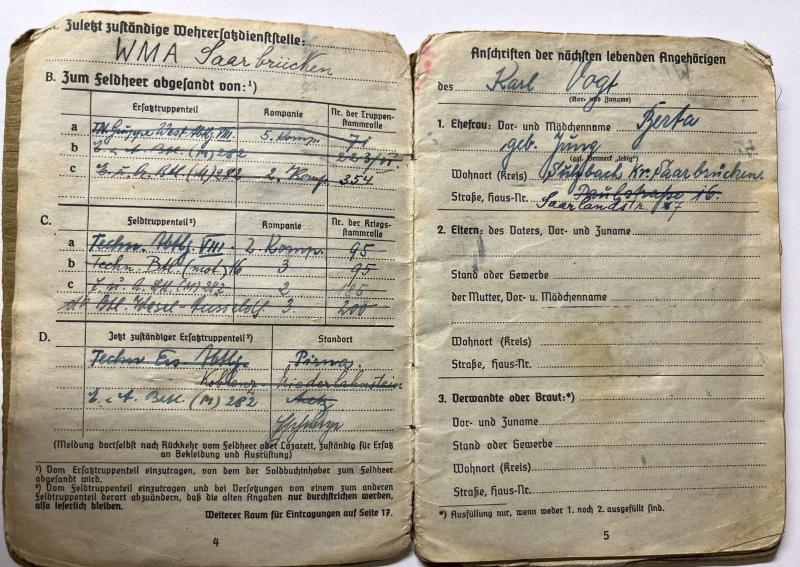 Zuletzt zuständige Wehrersatzdienststelle:
WMA Saarbrücken
B. Zum Feldheer abgesandt von:¹)
Ersatztruppenteil Kompanie Nr. der Truppenstammrolle
a 5. Komp. 71
b E. u. A. Btl. (M) 282
c E. u. A. Btl. (M) 282 2. Komp. 354
C. Feldtruppenteil²) Kompanie Nr. der Kriegsstammrolle
a Techn. Abtlg. VIII 2 Komp. 95
b Techn. Btl. (mot.) 16 3 95
c E. u. A. Btl. (M) 282 2
Btl. Wesel Düsseldf. 3. 200
D. Jetzt zuständiger Ersatztruppenteil²) Standort
Techn. Ers. Abtlg. Pirna
Koblenz-Niederlahnstein
E. u. A. Batl. (M) 282
(Meldung dortselbst nach Rückkehr vom Feldheer oder Lazarett, zuständig für Ersatz
an Bekleidung und Ausrüstung)
¹) Vom Ersatztruppenteil einzutragen, von dem der Soldbuchinhaber zum Feldheer
abgesandt wird.
²) Vom Feldtruppenteil einzutragen und bei Versetzungen von einem zum anderen
Feldtruppenteil derart abzuändern, daß die alten Angaben nur durchstrichen werden,
also leserlich bleiben.
Weiterer Raum für Eintragungen auf Seite 17.
4
Anschriften der nächsten lebenden Angehörigen
des Karl Vogt
(Vor- und Zuname)
1. Ehefrau: Vor- und Mädchenname Berta
geb. Jung
(ggf. Vermerk „ledig")
Wohnort (Kreis) Sulzbach Kr. Saarbrücken
Straße, Haus-Nr. 16.
Saarlandstr.
2. Eltern: des Vaters, Vor- und Zuname
Stand oder Gewerbe
der Mutter, Vor- u. Mädchenname
Wohnort (Kreis)
Straße, Haus-Nr.
3. Verwandte oder Braut:*)
Vor- und Zuname
Stand oder Gewerbe
Wohnort (Kreis)
Straße, Haus-Nr.
*) Ausfüllung nur, wenn weder 1. noch 2. ausgefüllt sind.
5